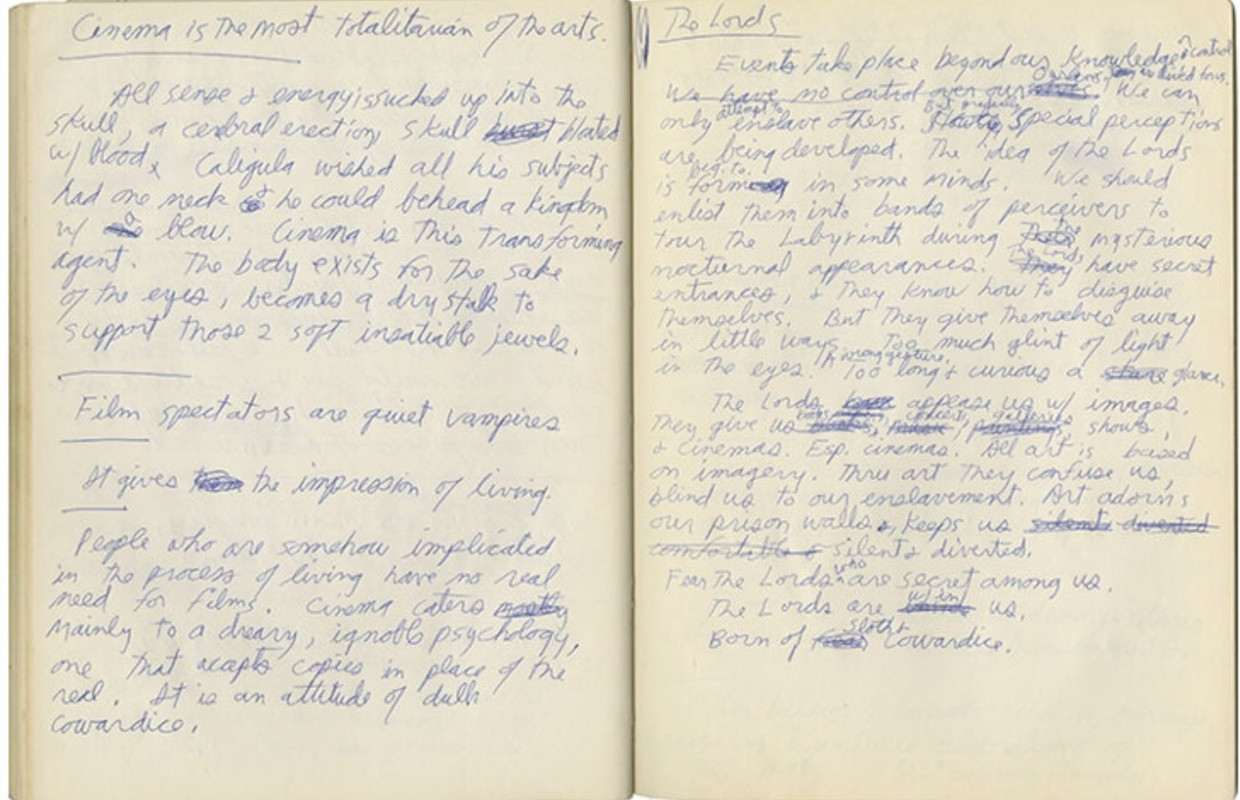 Cinema is the most totalitarian of the arts.
All sense & energy is sucked up into the
skull, a cerebral erection, skull bloated
w/ blood. Caligula wished all his subjects
had one neck & he could behead a kingdom
w/ a blow. Cinema is this transforming
agent. The body exists for the sake
of the eyes, becomes a dry stalk to
support those 2 soft insatiable jewels.
Film spectators are quiet vampires
It gives the impression of living.
People who are somehow implicated
in the process of living have no real
need for films. Cinema caters mostly
Mainly to a dreary, ignoble psychology,
one that accepts copies in place of the
real. It is an attitude of dull
cowardice.
The Lords
Events take place beyond our knowledge or control
Our lives, lived for us.
We have no control over ourselves. We can
only attempt to enslave others. But gradually, special perceptions
are being developed. The idea of the Lords
is beg. to form in some minds. We should
enlist them into bands of percievers to
tour the Labyrinth during Their mysterious
nocturnal appearances. The Lords They have secret
entrances, & They know how to disguise
Themselves. But They give Themselves away
in little ways. Too much glint of light
in the eyes. A wrong gesture. Too long & curious a stare glance.
The Lords appease us w/ images.
They give us books, concerts, galleries, shows,
& cinemas. Esp. cinemas. All art is based
on imagery. Thru art They confuse us,
blind us to our enslavement. Art adorns
our prison walls, keeps us silent diverted
comfortable & silent & diverted.
Fear the Lords who are secret among us.
The Lords are w/in us.
Born of sloth & Cowardice.